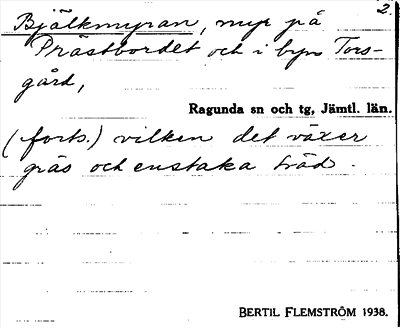 2.
Bjälkmyran, myr på
Prästbordet och i byn Tors-
gård,
Ragunda sn och tg, Jämtl. län.
(forts.) vilken det växer
gräs och enstaka träd.
BERTIL FLEMSTRÖM 1938.